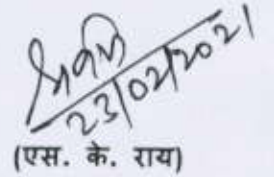 23/02/2021
(एस. के. राय)